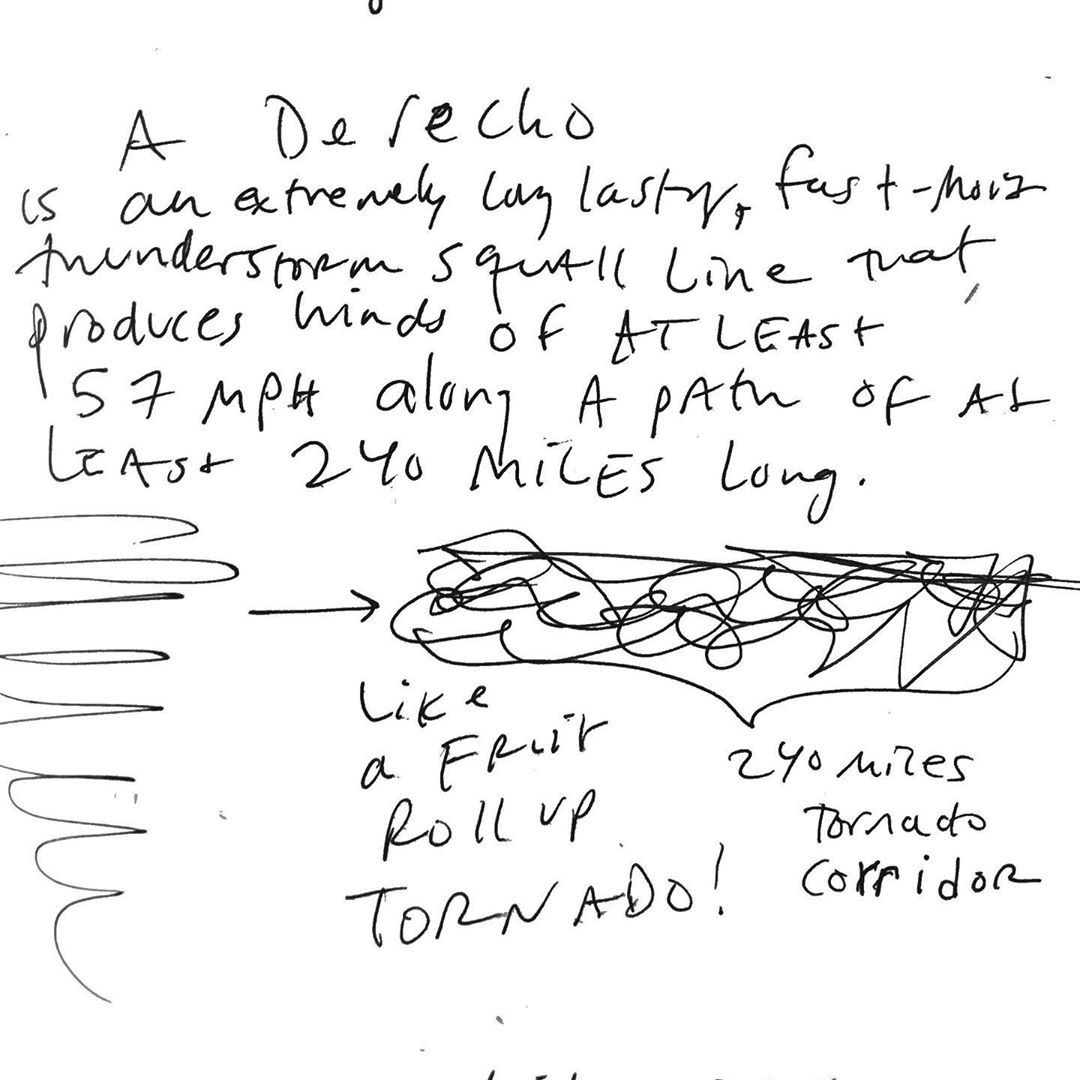 A Derecho
is an extremely long lasting, fast-moving
thunderstorm squall line that
produces winds of AT LEAST
57 MPH along A pAth of At
LEAst 240 MILES Long.
Like
a FRuit
Roll up
TORNADO!
240 miles
Tornado
corridor